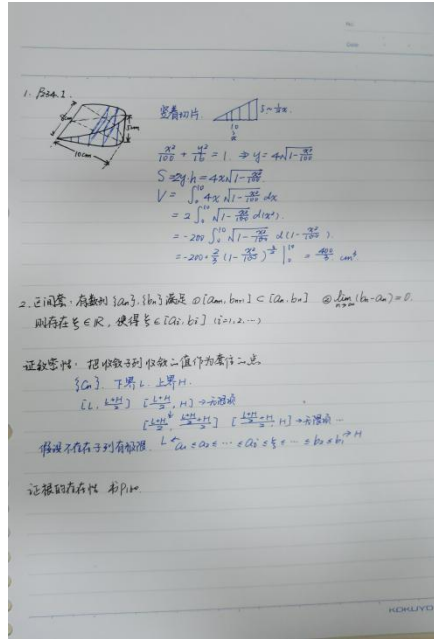 No.
Date
1. P234.1.
10cm
5cm
竖着切片.
h=½x.
10
x
x²/100 + y²/16 = 1. ⇒ y=4√(1-x²/100)
S=2y·h=4x√(1-x²/100).
V = ∫₀¹⁰ 4x√(1-x²/100) dx
= 2∫₀¹⁰ √(1-x²/100) d(x²).
= -200 ∫₀¹⁰ √(1-x²/100) d(1-x²/100).
= -200·⅔ (1-x²/100)^(3/2) |₀¹⁰ = 400/3 cm³
2. 区间套: 有数列 {aₙ}, {bₙ} 满足 ①[aₙ₊₁, bₙ₊₁] ⊂ [aₙ, bₙ] ②lim n→∞ (bₙ-aₙ)=0.
则存在 ξ∈R, 使得 ξ∈[aᵢ, bᵢ] (i=1,2,…)
证致密性: 把收敛子列收敛之值作为套住之点
{Cₙ}. 下界L. 上界H.
[L, (L+H)/2] [(L+H)/2, H] →无限项
→无限项 …
假设不存在子列有极限. a₁≤a₂≤…≤aᵢ≤ξ≤…≤b₂≤b₁
证根的存在性. 书P160.
KOKUYO